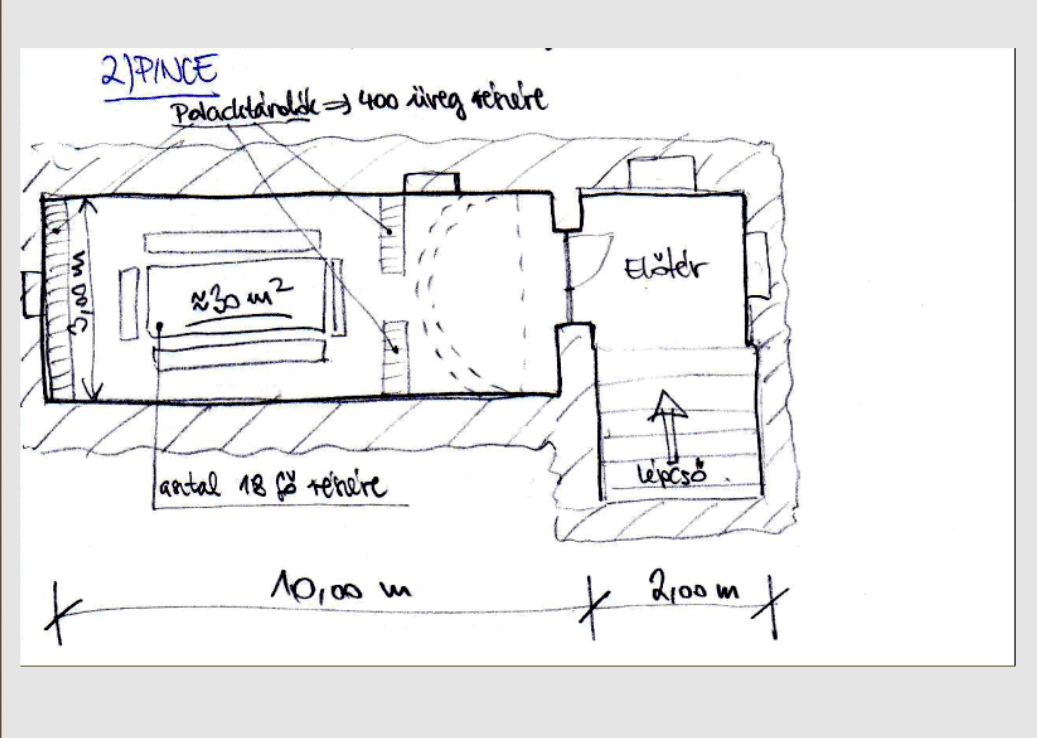 2) PINCE
Palacktárolók => 400 üveg részére
3,00 m
≈30 m²
Előtér
asztal 18 fő részére
lépcső
10,00 m
2,00 m